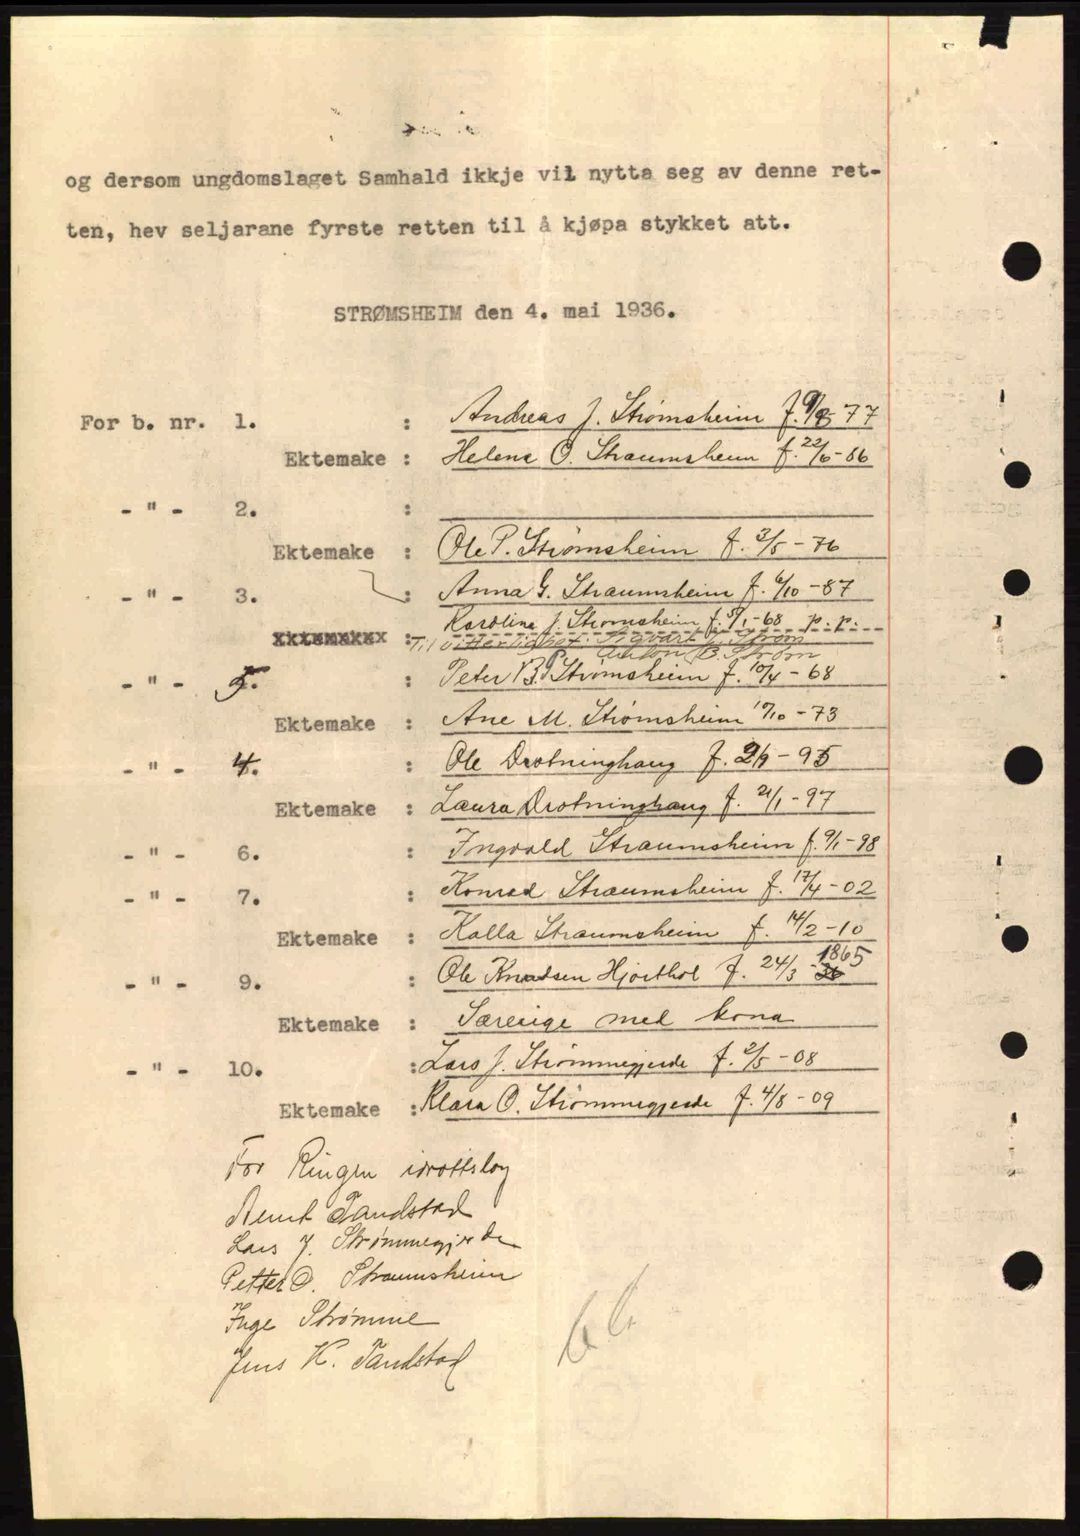 og dersom ungdomslaget Samhald ikkje vil nytta seg av denne ret-
ten, hev seljarane fyrste retten til å kjøpa stykket att.
STRØMSHEIM den 4. mai 1936.
For b. nr. 1. : Andreas J. Strømsheim f. 9/8-77
Ektemake : Helene O. Straumsheim f. 22/6-86
- " - 2. :
Ektemake : Ole P. Strømsheim f. 3/5-76
- " - 3. : Anna G. Straumsheim f. 6/10-87
xxxxxxxxx : Karolina J. Strømsheim f. 5/1-68 p.p.
Til vitterlighet: Sigvart Strøm
Anton B. Strøm
- " - 5. : Peter B. Strømsheim f. 10/4-68
Ektemake : Ane M. Strømsheim 10/10-73
- " - 4. : Ole Drotninghaug f. 2/9-95
Ektemake : Laura Drotninghaug f. 21/1-97
- " - 6. : Ingvald Straumsheim f. 9/1-98
- " - 7. : Konrad Straumsheim f. 17/4-02
Ektemake : Kalla Straumsheim f. 14/2-10
- " - 9. : Ole Knudsen Hjorthol f. 24/3-1865
Ektemake : Særeige med kona
- " - 10. : Lars J. Strømmegjerde f. 2/5-08
Ektemake : Klara O. Strømmegjerde f. 4/8-09
For Ringen idrottslag
Bernt Tandstad
Lars J. Strømmegjerde
Petter O. Straumsheim
Inge Strømme
Jens K. Tandstad